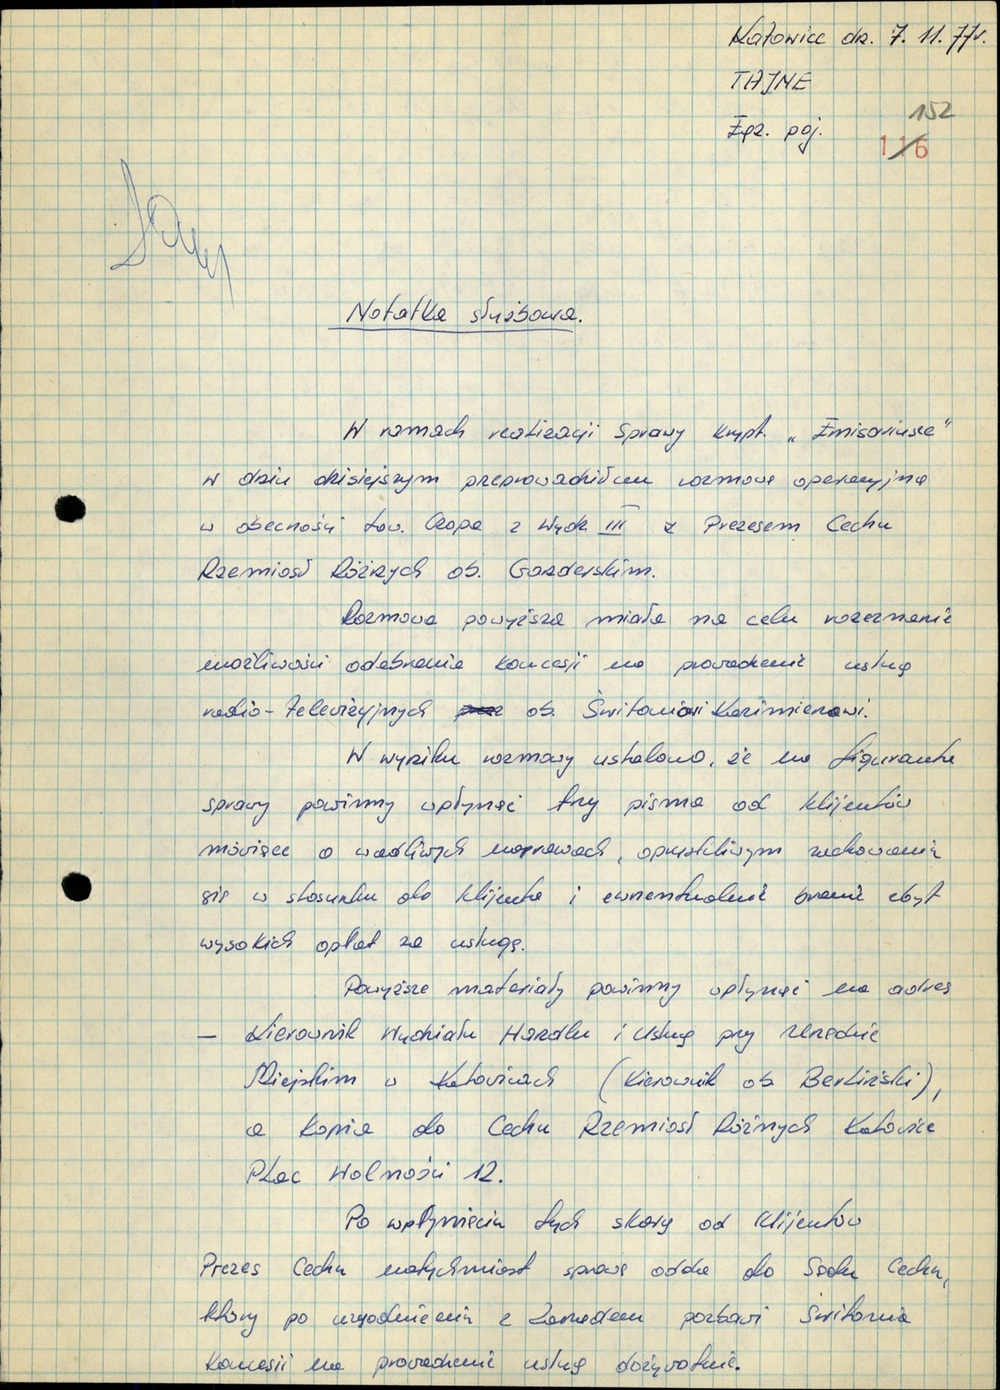 Katowice dn. 7.11.77r.
TAJNE
Egz. poj.
152
116
Notatka służbowa.
W ramach realizacji Sprawy krypt. „Emisariusze"
w dniu dzisiejszym przeprowadziłem rozmowę operacyjną
w obecności tow. Czopa z Wydz. III z Prezesem Cechu
Rzemiosł Różnych ob. Gonderskim.
Rozmowa powyższa miała na celu rozeznanie
możliwości odebrania koncesji na prowadzenie usług
radio-telewizyjnych ob. Świtoniowi Kazimierzowi.
W wyniku rozmowy ustalono, że na figuranta
sprawy powinny wpłynąć trzy pisma od klijentów
mówiące o wadliwych naprawach, opryskliwym zachowaniu
się w stosunku do klijenta i ewnentualnie branie zbyt
wysokich opłat za usługę.
Powyższe materiały powinny wpłynąć na adres
— Kierownik Wydziału Handlu i Usług przy Urzędzie
Miejskim w Katowicach (Kierownik ob. Berliński),
a kopia do Cechu Rzemiosł Różnych Katowice
Plac Wolności 12.
Po wpłynięciu tych skarg od klijentów
Prezes Cechu natychmiast sprawę odda do Sądu Cechu,
który po uzgodnieniu z Zarządem pozbawi Świtonia
koncesji na prowadzenie usług dożywotnie.